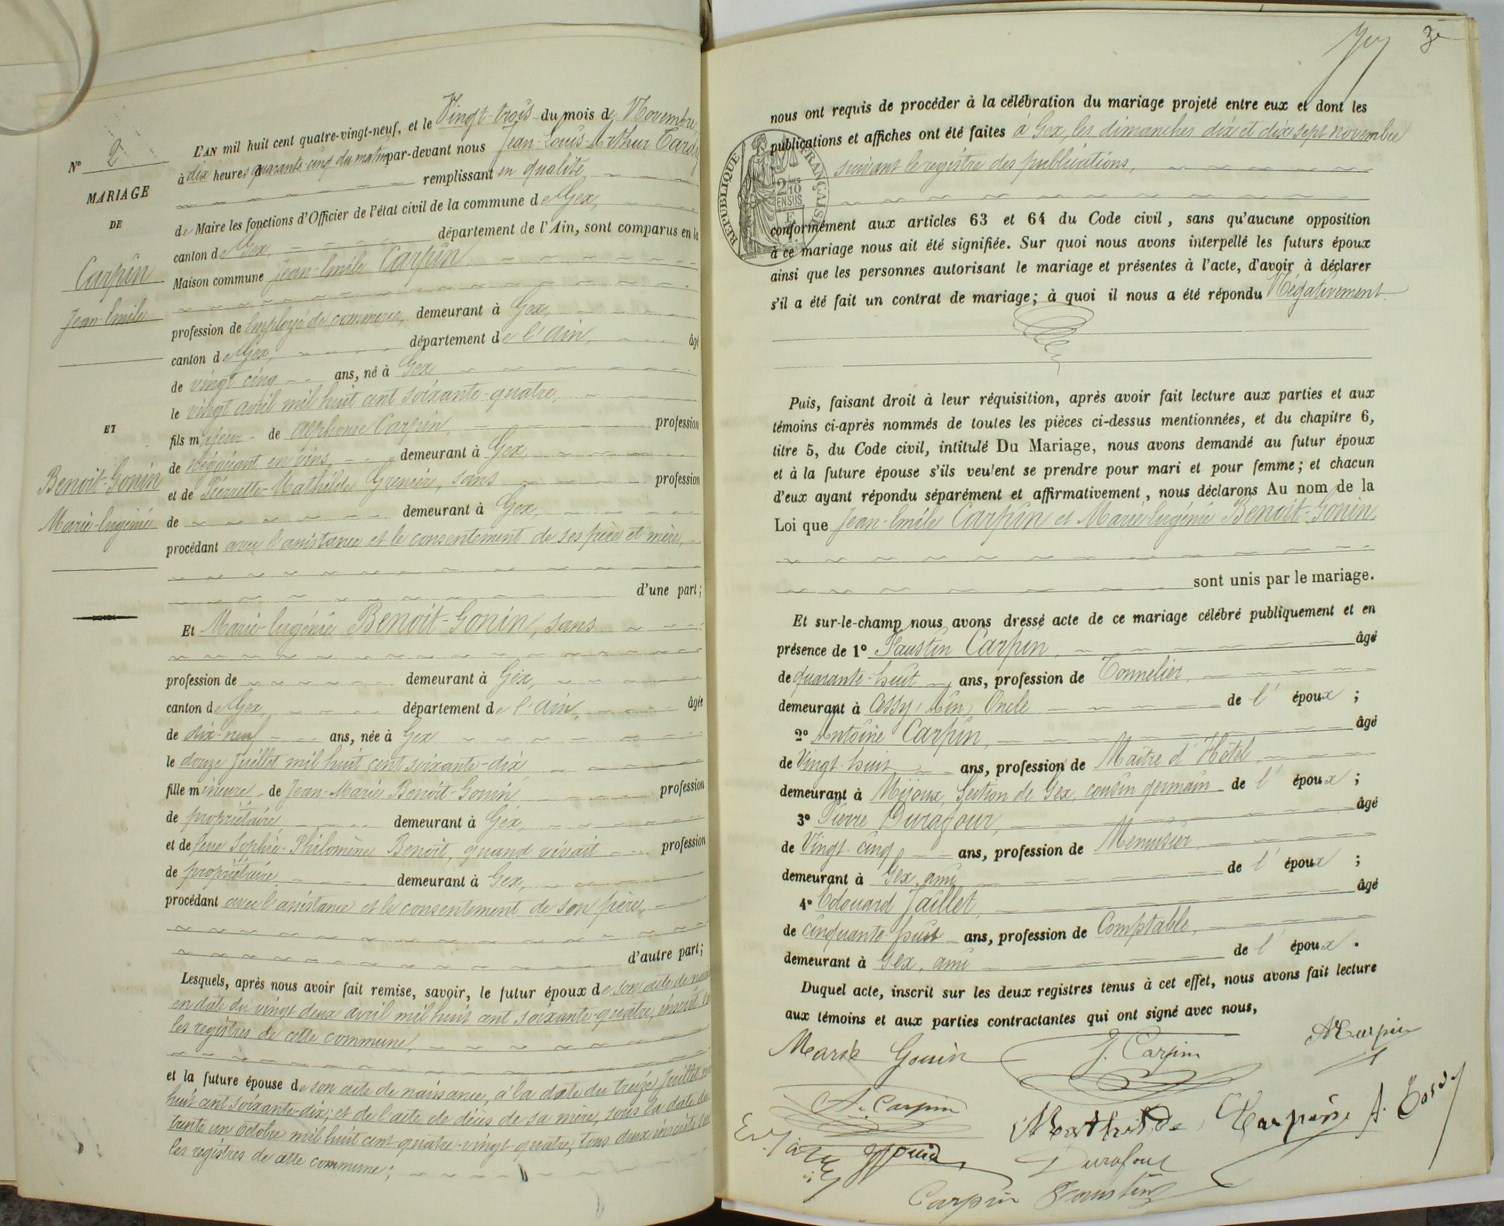 Nº 2
MARIAGE
DE
Carpin
Jean-Emile
ET
Benoit-Gonin
Marie-Eugénie
L'AN mil huit cent quatre-vingt-neuf, et le Vingt trois du mois de Novembre
à dix heures quarante cinq du matin par-devant nous Jean-Louis Arthur Tardy
remplissant en qualité,
de Maire les fonctions d'Officier de l'état civil de la commune de Gex,
canton de Gex, département de l'Ain, sont comparus en la
Maison commune Jean-Emile Carpin
profession de Employé de commerce, demeurant à Gex,
canton de Gex, département de l'Ain, âgé
de vingt cinq ans, né à Gex
le vingt avril mil huit cent soixante-quatre,
fils majeur de Alphonse Carpin, profession
de Négociant en vins, demeurant à Gex
et de Pierrette-Mathilde Grenier, sans profession
de demeurant à Gex,
procédant avec l'assistance et le consentement de ses père et mère,
d'une part;
Et Marie-Eugénie Benoit-Gonin, sans
profession de demeurant à Gex,
canton de Gex, département de l'Ain, âgée
de dix-neuf ans, née à Gex
le douze Juillet mil huit cent soixante-dix
fille mineure de Jean-Marie Benoit-Gonin profession
de propriétaire demeurant à Gex,
et de feue Sophie-Philomène Benoit, quand vivait profession
de propriétaire demeurant à Gex,
procédant avec l'assistance et le consentement de son père,
d'autre part;
Lesquels, après nous avoir fait remise, savoir, le futur époux de son acte de
en date du vingt deux avril mil huit cent soixante-quatre, inscrit
les registres de cette commune,
et la future épouse de son acte de naissance, à la date du treize Juillet
huit cent soixante-dix; et de l'acte de décès de sa mère, sous la date du
trente un Octobre mil huit cent quatre-vingt quatre, tous deux inscrits
les registres de cette commune;
Gex 3e
nous ont requis de procéder à la célébration du mariage projeté entre eux et dont les
publications et affiches ont été faites à Gex, les dimanches dix et dix sept novembre
suivant le registre des publications,
RÉPUBLIQUE FRANÇAISE
conformément aux articles 63 et 64 du Code civil, sans qu'aucune opposition
à ce mariage nous ait été signifiée. Sur quoi nous avons interpellé les futurs époux
ainsi que les personnes autorisant le mariage et présentes à l'acte, d'avoir à déclarer
s'il a été fait un contrat de mariage; à quoi il nous a été répondu Négativement
Puis, faisant droit à leur réquisition, après avoir fait lecture aux parties et aux
témoins ci-après nommés de toutes les pièces ci-dessus mentionnées, et du chapitre 6,
titre 5, du Code civil, intitulé Du Mariage, nous avons demandé au futur époux
et à la future épouse s'ils veulent se prendre pour mari et pour femme; et chacun
d'eux ayant répondu séparément et affirmativement, nous déclarons Au nom de la
Loi que Jean-Emile Carpin et Marie-Eugénie Benoit-Gonin,
sont unis par le mariage.
Et sur-le-champ nous avons dressé acte de ce mariage célébré publiquement et en
présence de 1º Faustin Carpin, âgé
de quarante-huit ans, profession de Tonnelier,
demeurant à Cessy (Ain) Oncle de l'époux;
2º Antoine Carpin, âgé
de Vingt huit ans, profession de Maître d'Hôtel,
demeurant à Mijoux, Section de Gex, cousin germain de l'époux;
3º Pierre Durafour, âgé
de Vingt cinq ans, profession de Menuisier
demeurant à Gex, ami de l'époux;
4º Edouard Jaillet, âgé
de cinquante huit ans, profession de Comptable,
demeurant à Gex, ami de l'époux.
Duquel acte, inscrit sur les deux registres tenus à cet effet, nous avons fait lecture
aux témoins et aux parties contractantes qui ont signé avec nous,
Marie Gonin J. Carpin A Carpin
A. Carpin Mathilde Carpin A. Tardy
Gonin Durafour
Carpin Faustin